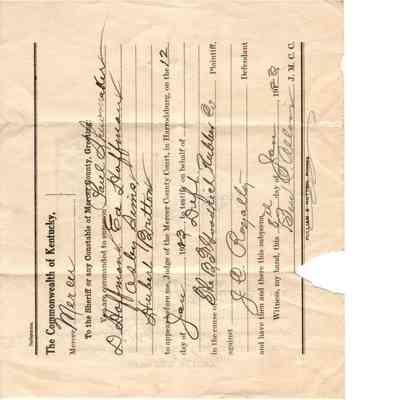 Subpoena.
The Commonwealth of Kentucky,
Mercer Mercer
To the Sheriff or any Constable of Mercer County, Greeting:
You are commanded to summon Paul Shewmaker
D. Hoffman Ed Hoffman
Osley Sims
Hubert Britton
to appear before me, Judge of the Mercer County Court, in Harrodsburg, on the 12
day of Jan 1923 to testify on behalf of Deft
in the cause of The B F Goodrich Rubber Co Plaintiff,
against J. C. Royalty Defendant
and have then and there this subpœna.
Witness, my hand, this day of Jan 1923
Ben C Allin J. M. C. C.